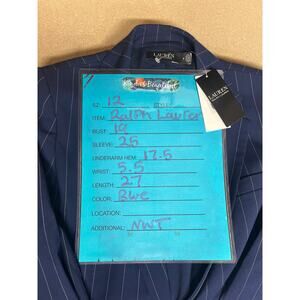 LAUREN
SZ: 12 STYLE:
ITEM: Ralph Lauren
BUST: 19
SLEEVE: 25
UNDERARM HEM: 17.5
WRIST: 5.5
LENGTH: 27
COLOR: Blue
LOCATION:
ADDITIONAL: NWT
LAUREN